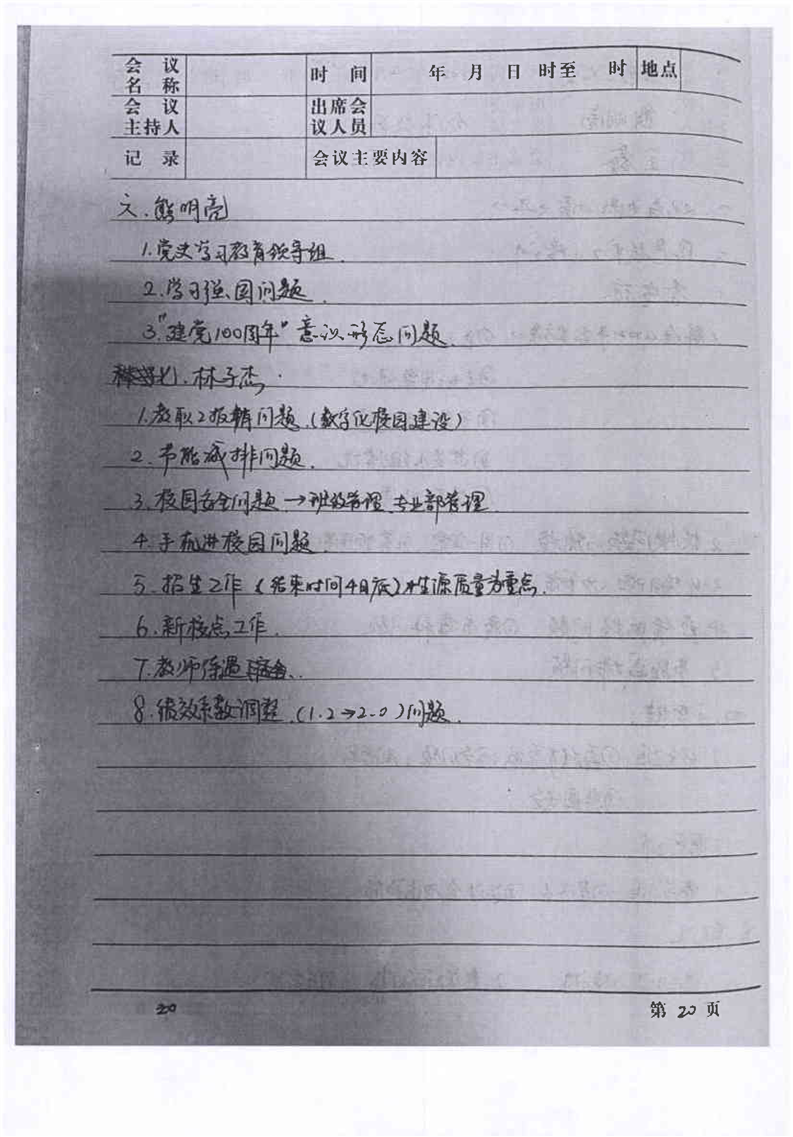 会议名称 时间 年 月 日 时至 时 地点
会议主持人 出席会议人员
记录 会议主要内容
六.熊明亮
1.党史学习教育领导组.
2.学习强国问题.
3."建党100周年"意识形态问题.
七.林子杰.
1.教职工报销问题.(数字化校园建设)
2.节能减排问题.
3.校园安全问题→班级管理.专业部管理.
4.手机进校园问题
5.招生工作(结束时间4月底)生源质量为重点.
6.新校点工作.
7.教师待遇
8.绩效系数调整.(1.2→2.0)问题.
20 第20页